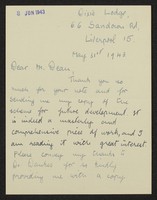 8 JUN 1943
Dixie Lodge,
66 Sandown Rd,
Liverpool 15.
May 31st 1943
Dear Mr. Dean,
Thank you so
much for your note and for
sending me my copy of the
scheme for future development. It
is indeed a masterly and
comprehensive piece of work, and I
am reading it with great interest
Please convey my thanks to
for so kindly
providing me with a copy